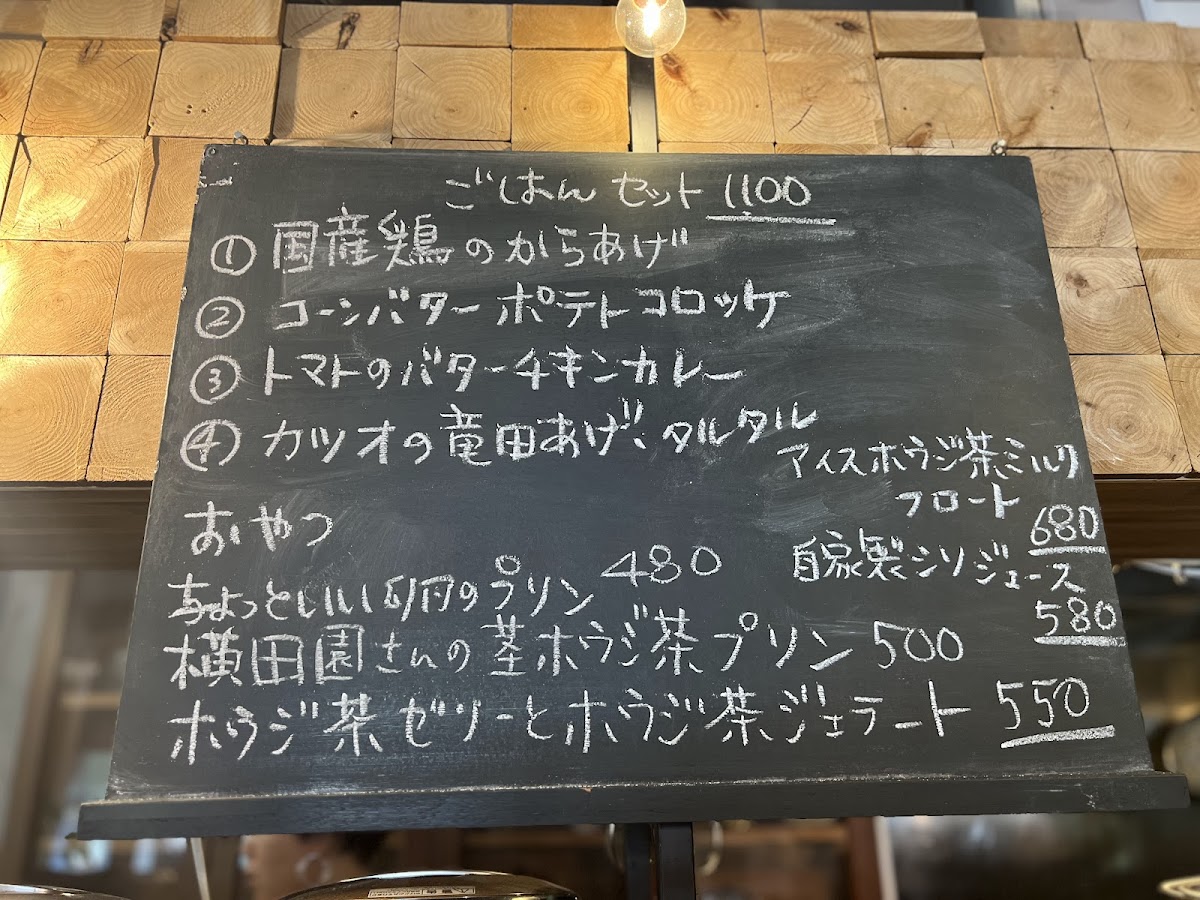 ごはんセット 1100
① 国産鶏のからあげ
② コーンバターポテトコロッケ
③ トマトのバターチキンカレー
④ カツオの竜田あげ、タルタル
おやつ
ちょっといい卵のプリン 480
横田園さんの茎ホウジ茶プリン 500
ホウジ茶ゼリーとホウジ茶ジェラート 550
アイスホウジ茶ミルク
フロート
680
自家製シソジュース
580